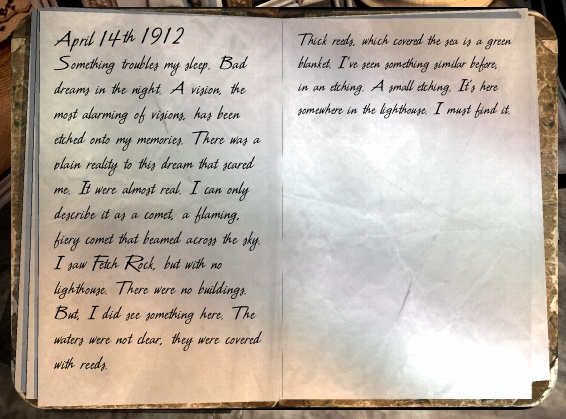 April 14th 1912
Something troubles my sleep. Bad
dreams in the night. A vision, the
most alarming of visions, has been
etched onto my memories. There was a
plain reality to this dream that scared
me. It were almost real. I can only
describe it as a comet, a flaming,
fiery comet that beamed across the sky.
I saw Fetch Rock, but with no
lighthouse. There were no buildings.
But, I did see something here. The
waters were not clear, they were covered
with reeds.
Thick reeds, which covered the sea is a green
blanket. I've seen something similar before,
in an etching. A small etching. It's here
somewhere in the lighthouse. I must find it.